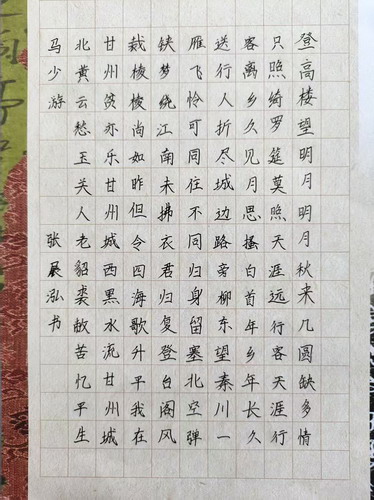 登高楼望明月明月秋来几圆缺多情
只照绮罗筵莫照天涯远行客天涯行
客离乡久见月思搔白首年乡年长久
送行人折尽城边路旁柳东望秦川一
雁飞怜可同往不同归身留塞北空弹
铗梦绕江南未拂衣君归复登台阁风
裁棱棱尚如昨但令四海歌升平我在
甘州贫亦乐甘州城西黑水流甘州城
北黄云愁玉关人老貂裘敝苦忆平生
马少游 张展泓书